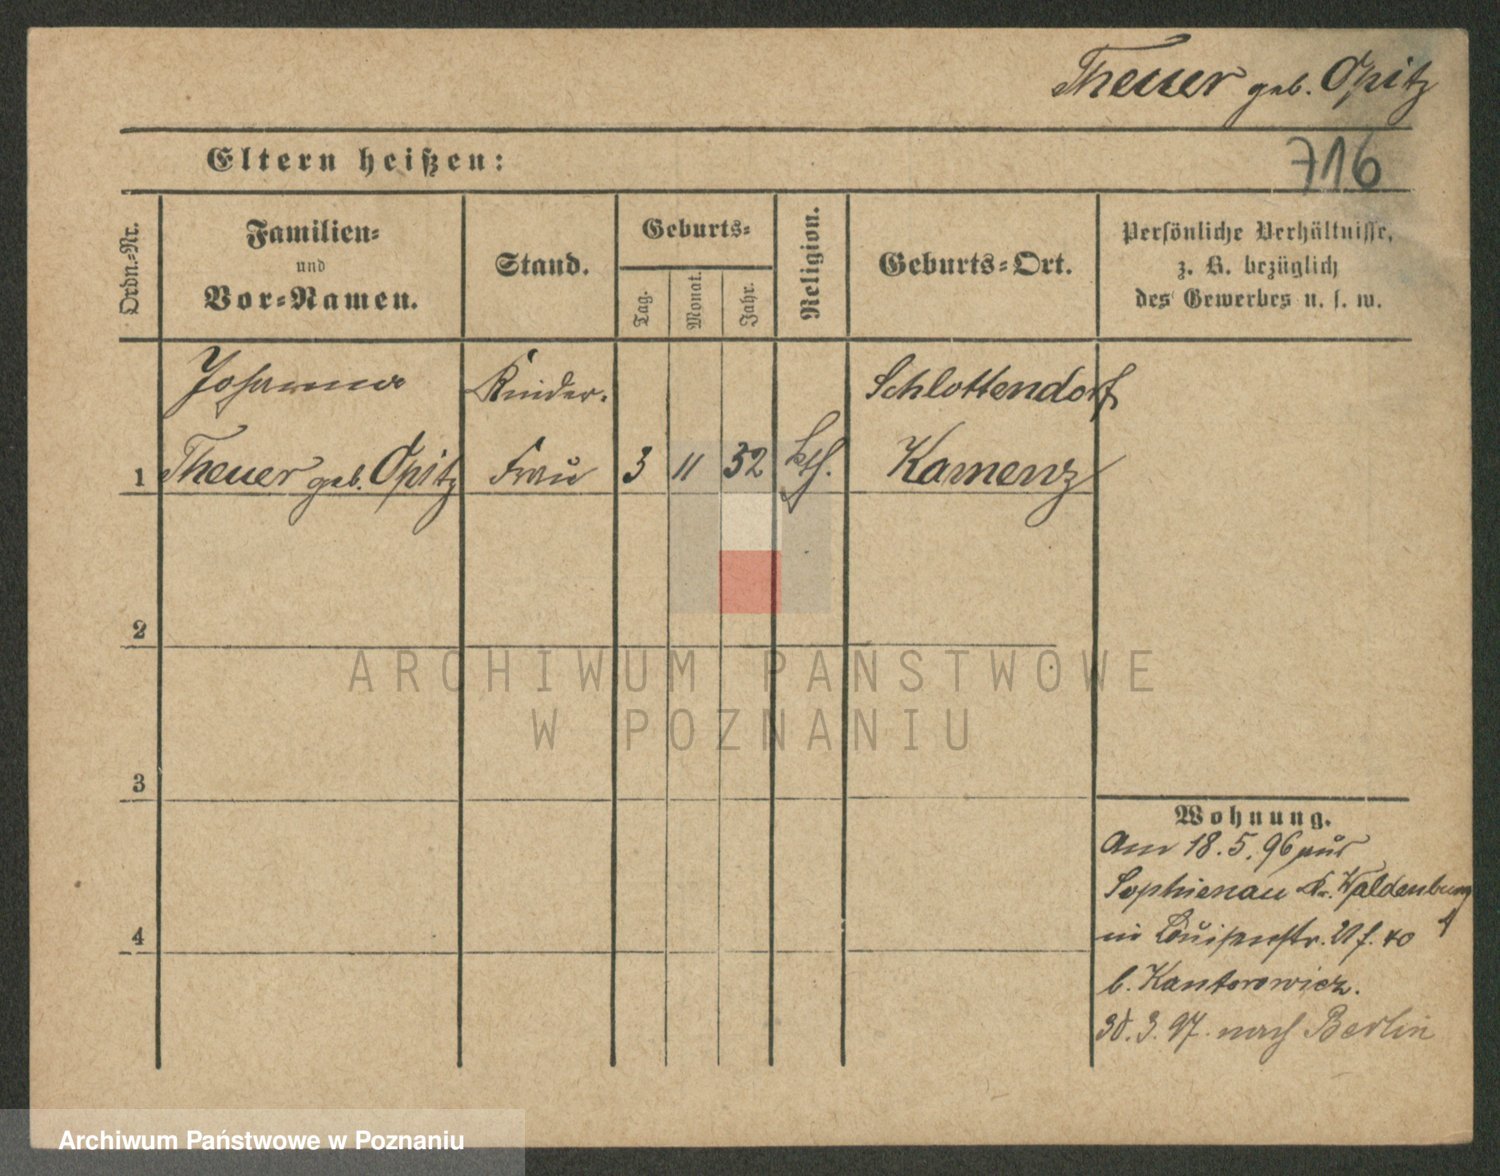 Theuer geb. Opitz
716
Eltern heißen:
Ordn.-Nr.
Familien-
und
Vor-Namen.
Stand.
Geburts-
Tag.
Monat.
Jahr.
Religion.
Geburts-Ort.
Persönliche Verhältnisse,
z. B. bezüglich
des Gewerbes u. s. w.
Johanna
Kinder-
Schlottendorf
1
Theuer geb. Opitz
Frau
3
11
32
kth.
Kamenz
2
ARCHIWUM PAŃSTWOWE
W POZNANIU
3
Wohnung.
Am 18.5.96 aus
Sophienau Kr. Waldenburg
in Louisenstr.
4
b. Kantorowicz.
30.3.97. nach Berlin
Archiwum Państwowe w Poznaniu